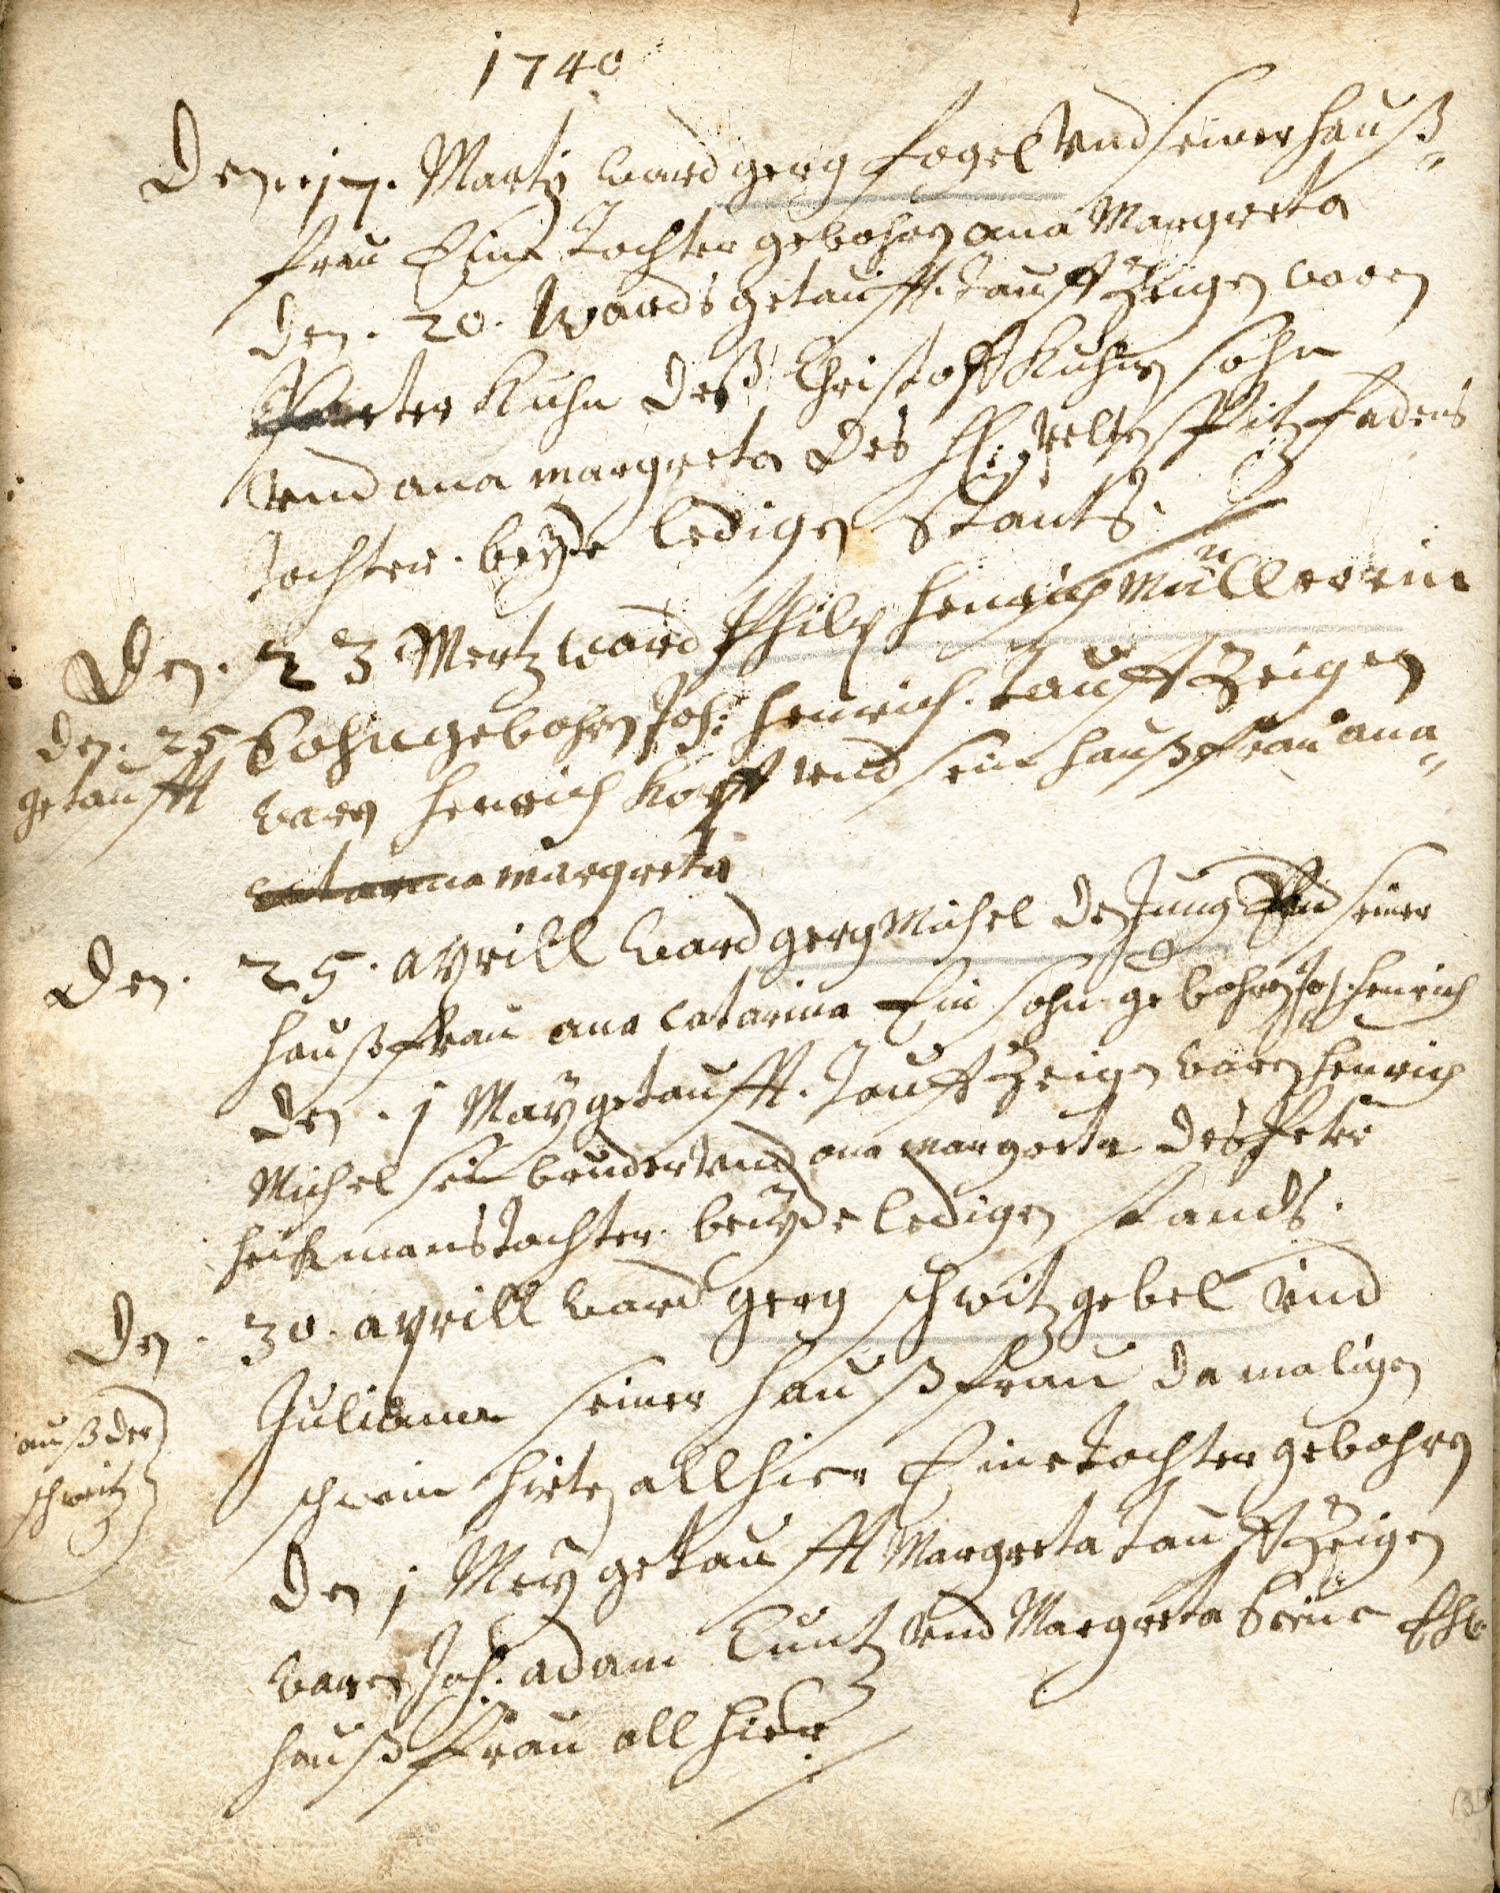 1740
Den 17. Martÿ ward gerg fogel Vnd seiner hauß„
frau Eine Tochter gebohrn ana Margreta
den. 20. Wards getaufft. Tauff Zeigen waren
Peter Kuhn deß Christoff Kuhn sohn
vnd ana margreta des Velten Pitz fadens
tochter. beyde ledigen Stants.
Den. 23 Mertz ward Philp henrich Müllern ein
den. 25
getaufft
Sohn gebohrn Joh: henrich. Tauff Zeigen
warn henrich Kopff vnd sein hauß frau ana„
catarina margreta
Den. 25. aprill ward gerg Michel de Jung Vnd seiner
hauß frau ana Catarina Ein sohn gebohrn Joh. henrich
den. 1 Maÿ getaufft. Tauff Zeigen waren henrich
Michel sein bruder Vnd ana margreta des Peter
heckmans tochter. beÿde ledigen stands.
Den. 30. aprill ward gerg schwitz gebel Vnd
auß der
schweitz
Juliana seiner hauß frau damaligen
schwein hirten allhier Eine Tochter gebohrn
den 1 Meÿ getaufft Margreta Tauff Zeigen
waren Joh. adam Cuntz Vnd Margreta Seine Ehe
hauß frau all hier